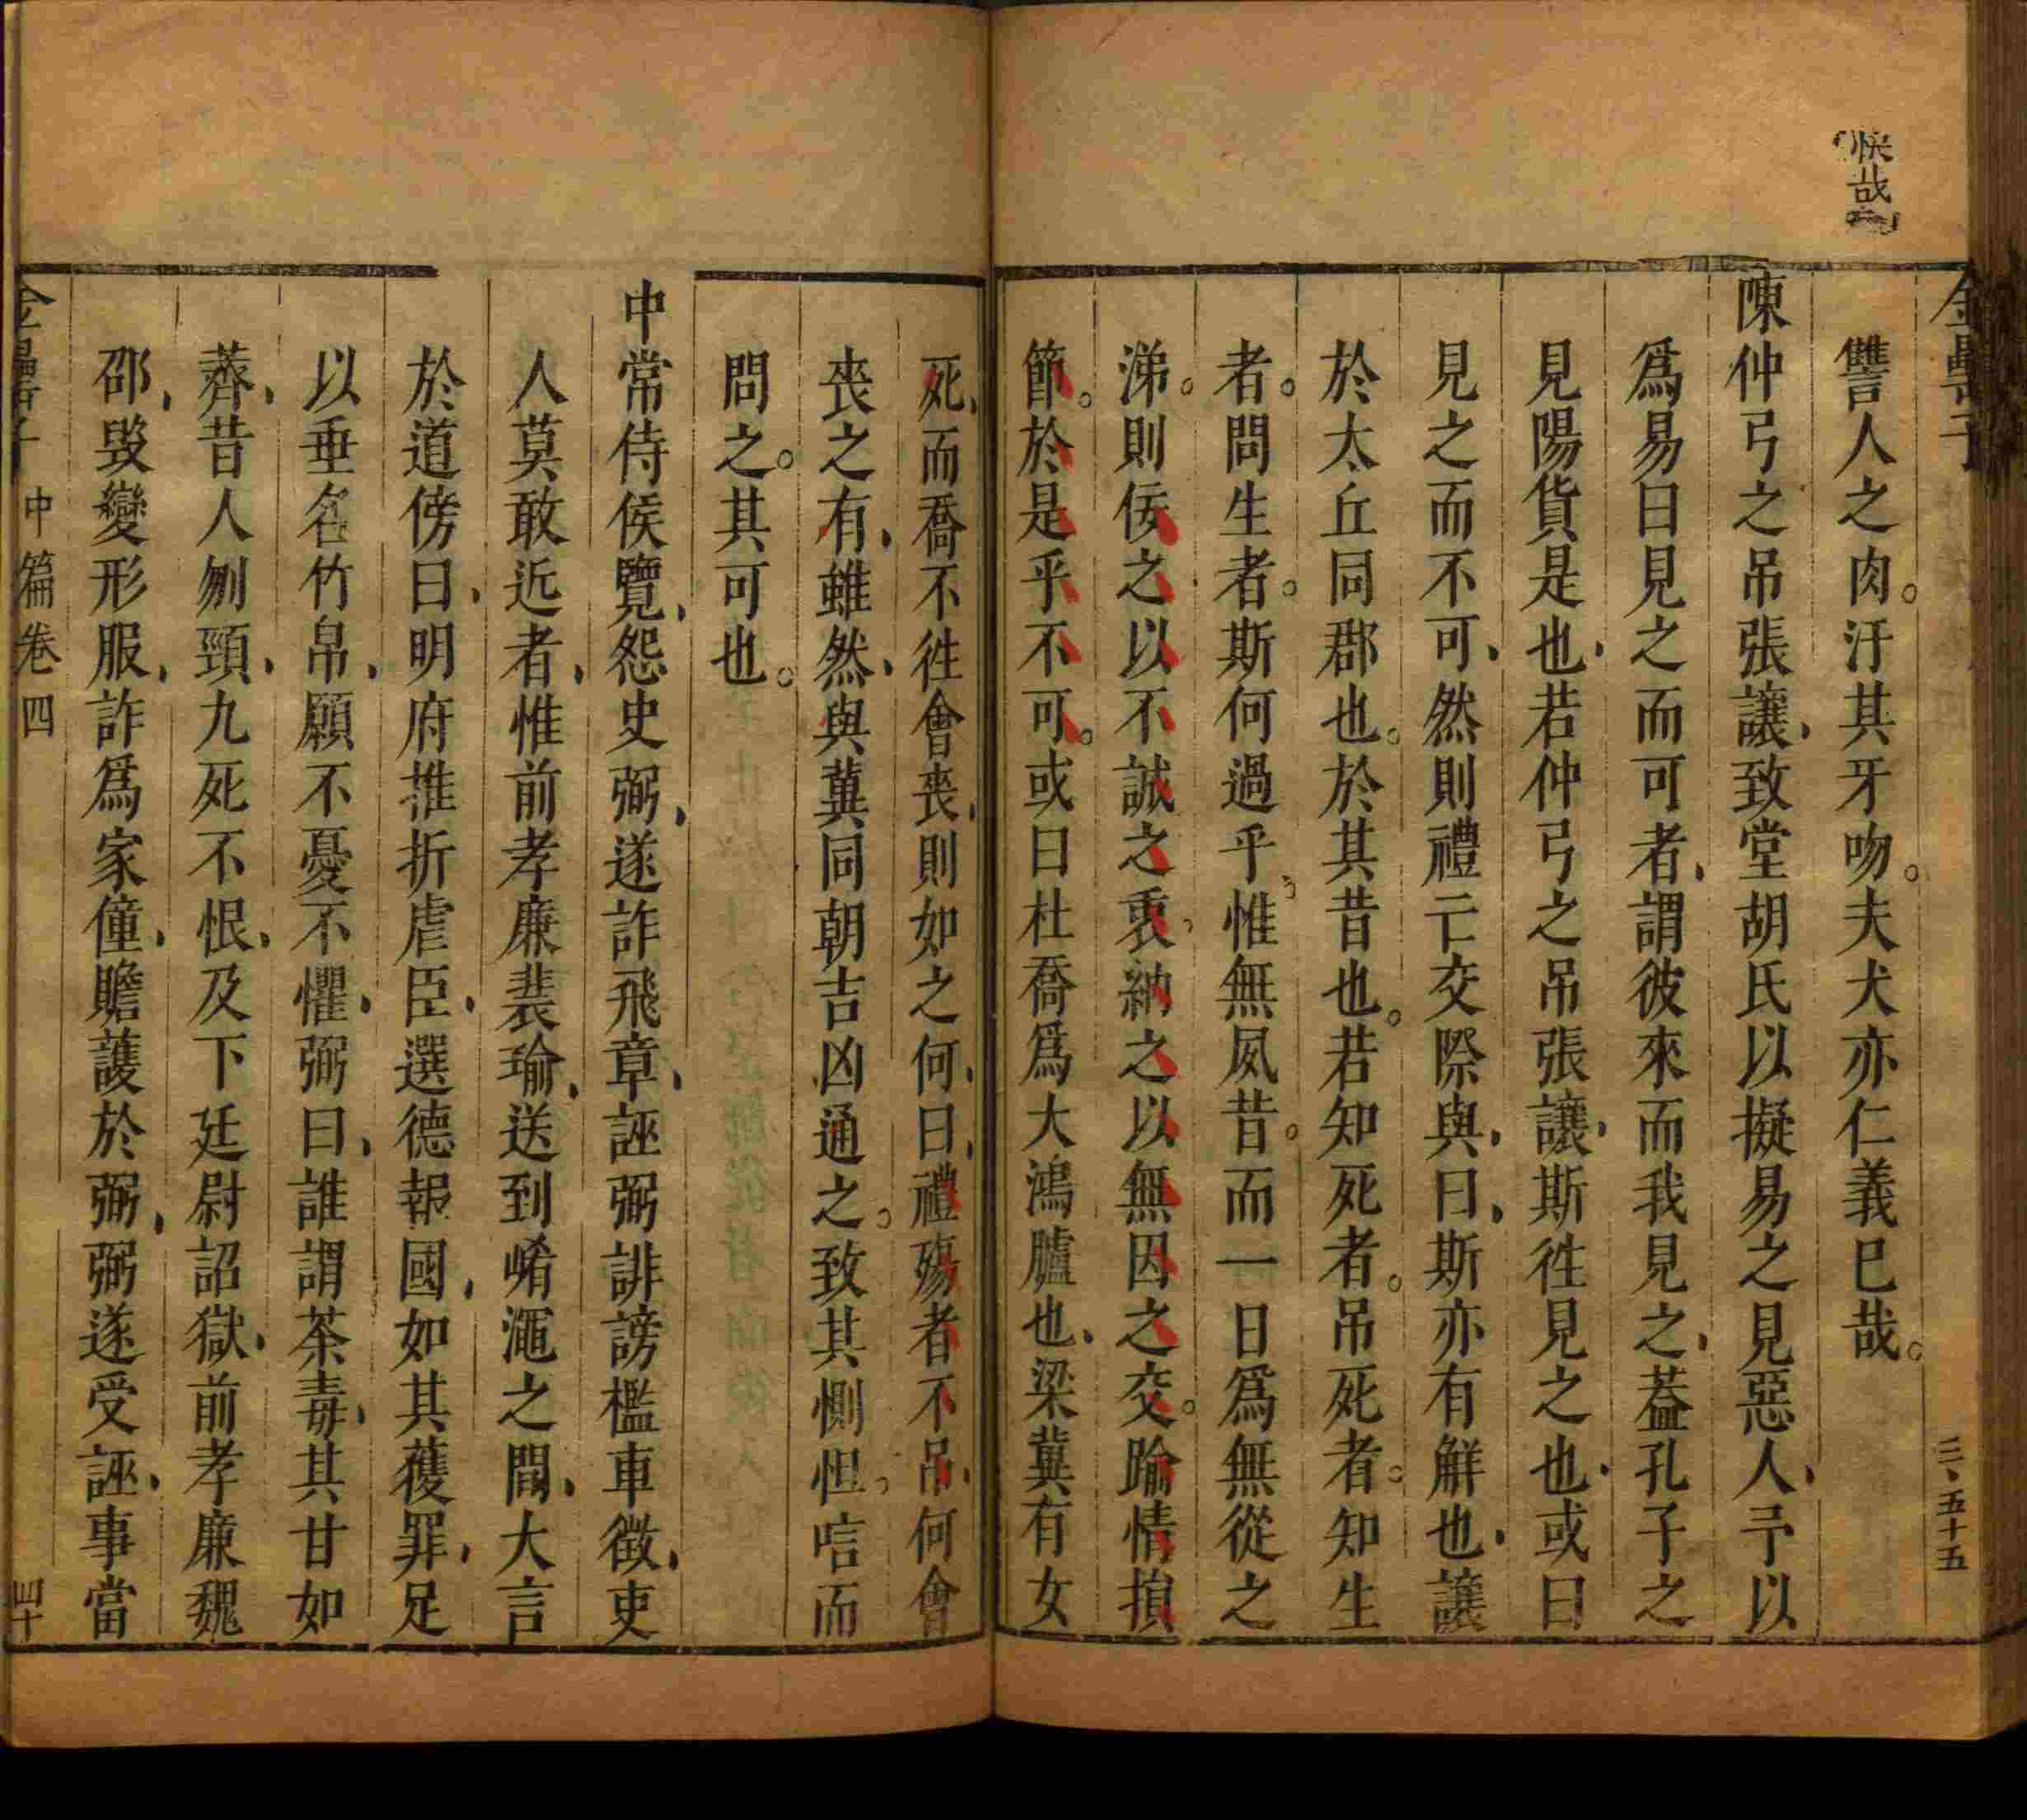 快哉
金罍子
三、五十五
讐人之肉。汙其牙吻。夫犬亦仁義巳哉。
陳仲弓之吊張讓、致堂胡氏以擬易之見惡人、予以
爲易曰見之而可者、謂彼來而我見之、葢孔子之
見陽貨是也、若仲弓之吊張讓、斯徃見之也、或曰
見之而不可、然則禮亡交際與、曰、斯亦有觧也、讓
於太丘同郡也。於其昔也。若知死者。吊死者。知生
者。問生者。斯何過乎、惟無夙昔。而一日爲無從之
涕。則佞之以不誠之衷、納之以無因之交。踰情損
節。於是乎不可。或曰杜喬爲大鴻臚也、梁冀有女
死、而喬不徃會喪、則如之何、曰、禮殤者不吊、何會
喪之有、雖然、與冀同朝吉凶通之。致其惻怛。唁而
問之。其可也。
中常侍侯覽、怨史弼、遂詐飛章、誣弼誹謗檻車徵、吏
人莫敢近者、惟前孝廉裴瑜、送到崤澠之間、大言
於道傍曰、明府摧折虐臣、選德報國、如其獲罪、足
以垂名竹帛、願不憂不懼、弼曰、誰謂荼毒、其甘如
薺、昔人刎頸、九死不恨、及下廷尉詔獄、前孝廉魏
邵、毀變形服、詐爲家僮、瞻護於弼、弼遂受誣、事當
金罍子 中篇卷四 四十